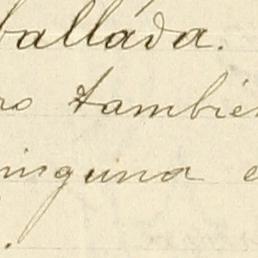 ballada.
ro tambié
ninguna e